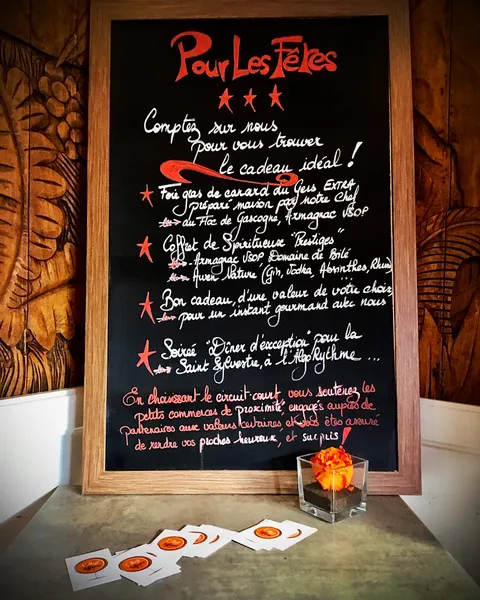 Pour Les Fêtes
Comptez sur nous
pour vous trouver
le cadeau idéal !
Foie gras de canard du Gers EXTRA
préparé maison par notre Chef
au Floc de Gascogne, Armagnac VSOP
Coffret de Spiritueux "Prestiges"
Armagnac VSOP Domaine de Bilé
Awen Nature (Gin, Vodka, Absinthes, Rhum
Bon cadeau, d'une valeur de votre choix
pour un instant gourmand avec nous
Soirée "Dîner d'exception" pour la
Saint Sylvestre, à l'AlgoRythme ...
En choisissant le circuit-court, vous soutenez les
petits commerces de proximité, engagés auprès de
partenaires aux valeurs certaines et vous êtes assuré
de rendre vos proches heureux, et surpris !